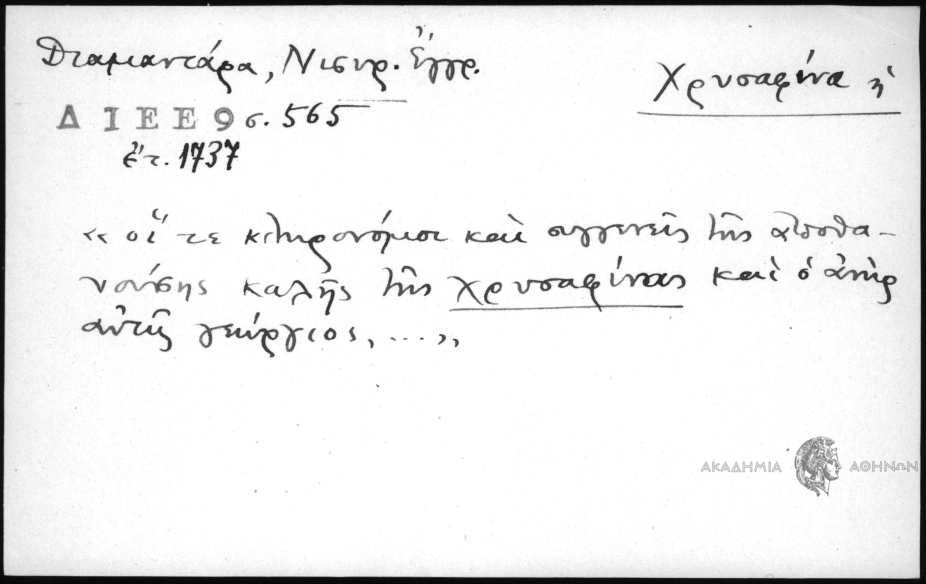 Διαμαντάρα, Νισυρ. Ἔγγρ.
Χρυσαφίνα ἡ
ΔΙΕΕ 9 σ. 565
ἔτ. 1737
«οἵ τε κληρονόμοι καὶ συγγενεῖς τῆς ἀποθα-
νούσης καλῆς τῆς χρυσαφίνας καὶ ὁ ἀνὴρ
αὐτῆς γεώργιος, ...»,
ΑΚΑΔΗΜΙΑ ΑΘΗΝΩΝ